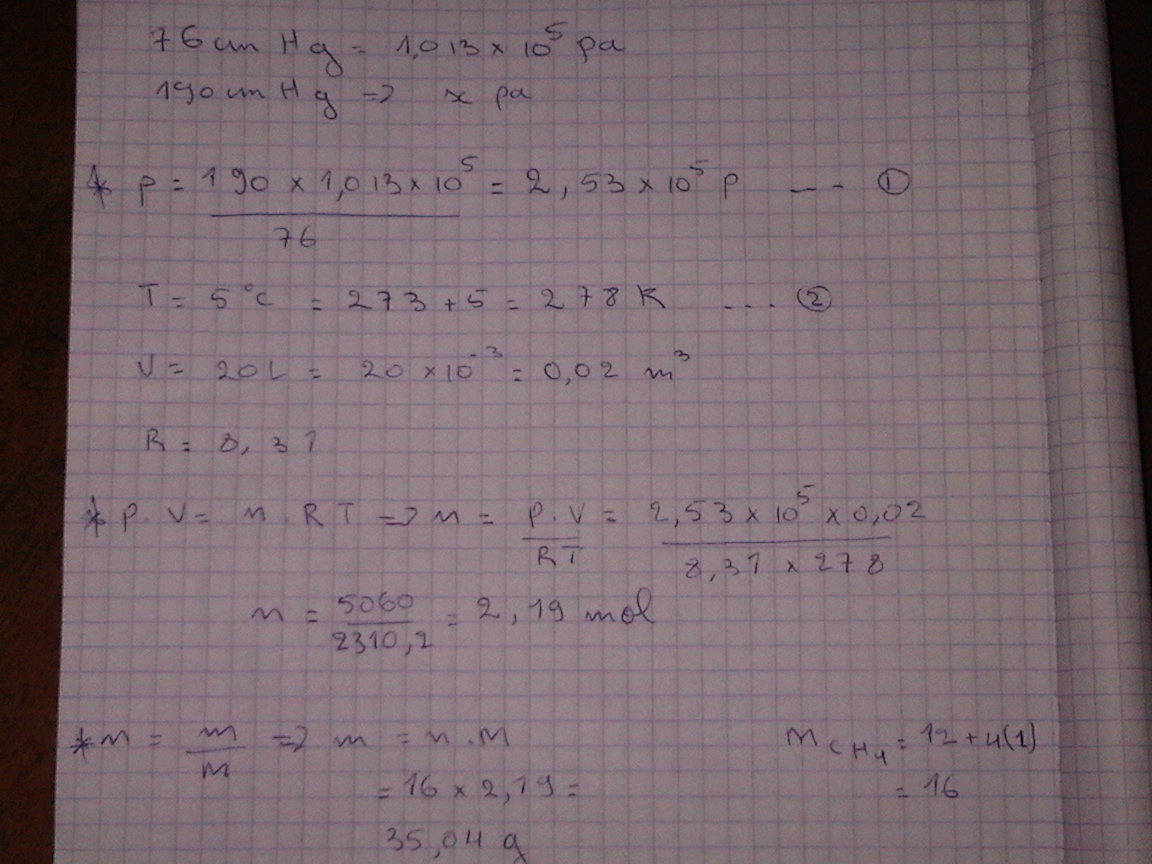 76 cm Hg = 1,013 × 10⁵ pa
190 cm Hg => x pa
* p = 190 × 1,013 × 10⁵ / 76 = 2,53 × 10⁵ p --- ①
T = 5°C = 273 + 5 = 278 K --- ②
V = 20 L = 20 × 10⁻³ = 0,02 m³
R = 8,31
* p . V = n . R T => n = p . V / R T = 2,53 × 10⁵ × 0,02 / 8,31 × 278
n = 5060 / 2310,2 = 2,19 mol
* n = m / M => m = n . M
= 16 × 2,19 =
35,04 g
M CH₄ = 12 + 4(1)
= 16